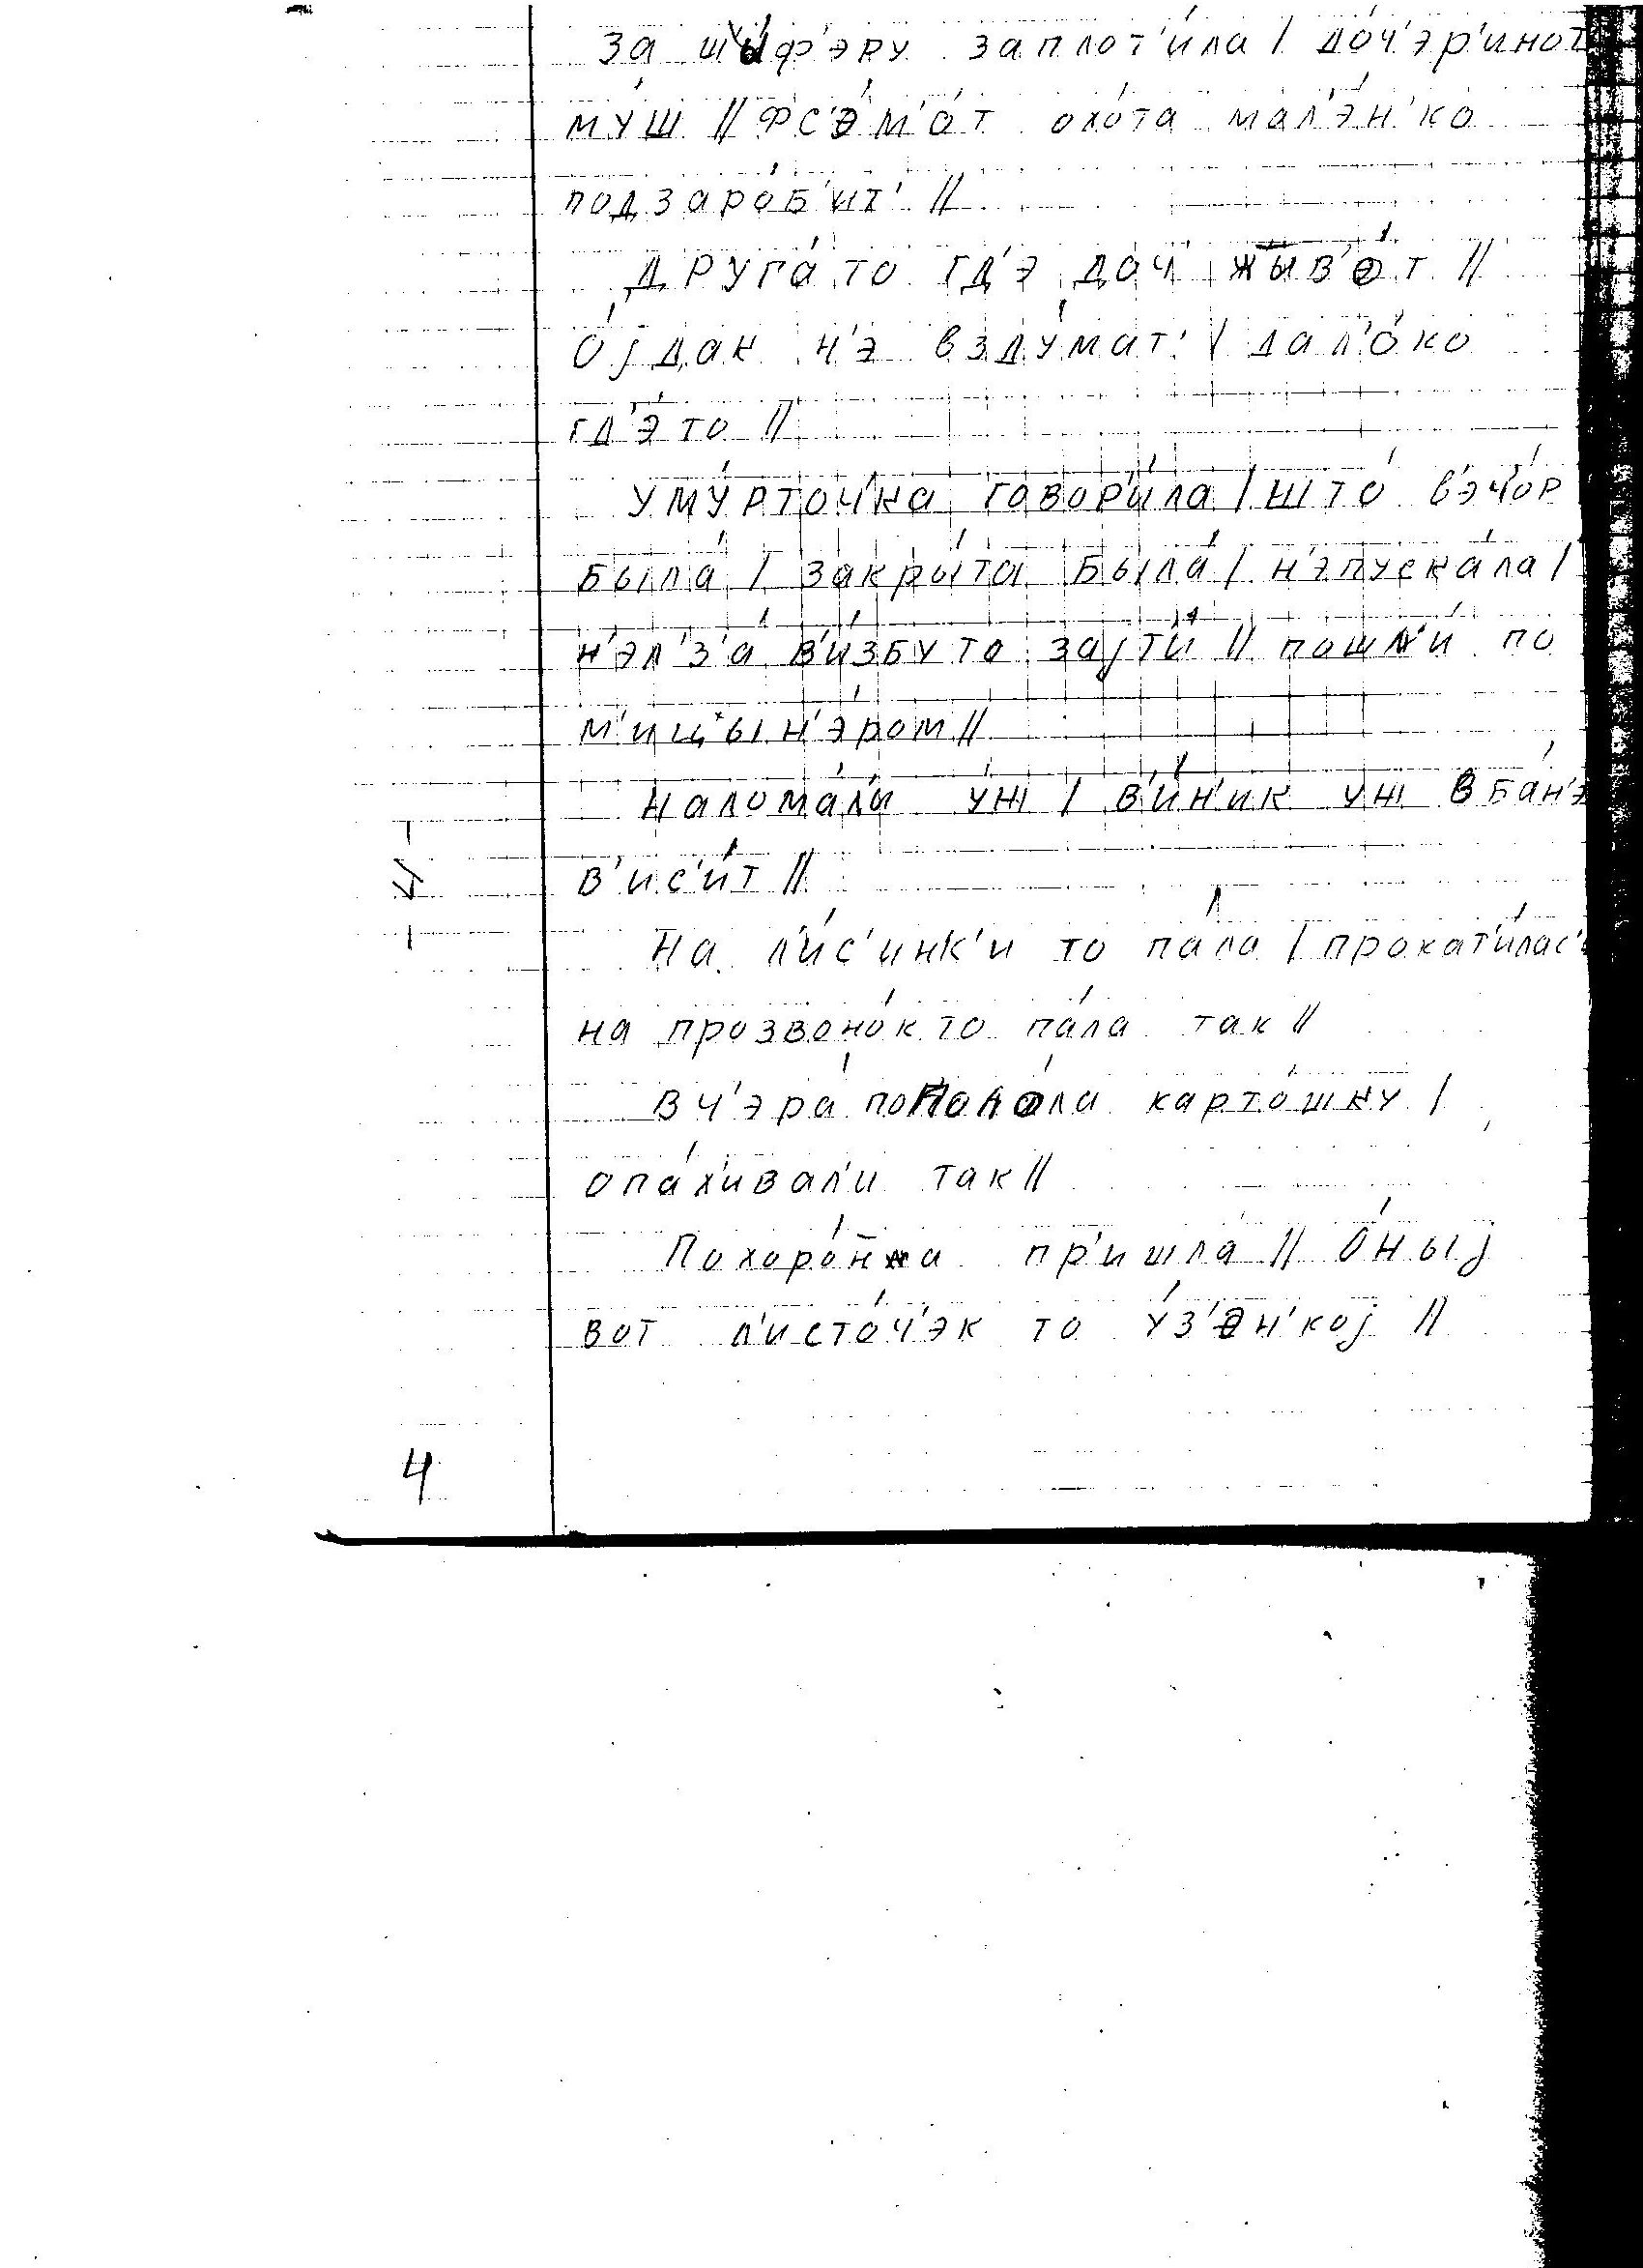 за шы́ф'эру заплот'и́ла / до́ч'эр'инот
му́ш // фс'э́м'о́т охо́та мал'э́н'ко
подзаро́б'ит' //
Друга́ то гд'э доч жыв'о́т //
О́ј дак н'э взду́мат' / дал'о́ко
гд'э́ то //
У му́рточ'ка говор'и́ла / што́ в'эчо́р
была́ / закры́та была́ / н'эпуска́ла /
н'эл'з'а́ в'и́збу то зајти́ // пошл'и́ по
м'ицын'э́ром //
Налома́л'и уж / в'и́н'ик уж в ба́н'э
в'ис'и́т //
На л'и́с'инк'и то па́ла / прокат'и́лас'
на прозвоно́к то па́ла так //
Вч'эра́ пополо́ла карто́шку /
опа́х'ивал'и так //
Похоро́нка пр'ишла́ // О́ныј
вот л'исто́ч'эк то у́з'эн'кој //
4